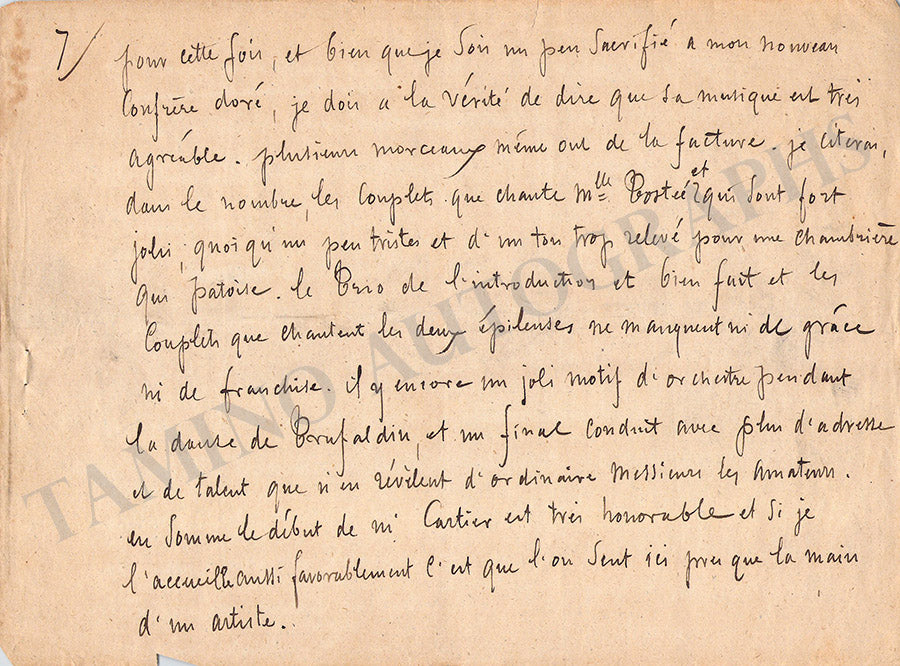 7/ pour cette fois, et bien que je sois un peu sacrifié a mon nouveau
Confrère doré, je dois a la vérité de dire que sa musique est très
agréable. plusieurs morceaux même ont de la facture. je citerai,
dans le nombre, les Couplets que chante Mlle Tostée et qui sont fort
jolis, quoi qu'un peu tristes et d'un ton trop relevé pour une chambrière
qui patoise. le Trio de l'introduction et bien fait et les
Couplets que chantent les deux épileuses ne manquent ni de grâce
ni de franchise. il y encore un joli motif d'orchestre pendant
la danse de Trufaldin, et un final conduit avec plus d'adresse
et de talent que n'en révèlent d'ordinaire Messieurs les amateurs.
en somme le début de Mr Cartier est très honorable et si je
l'accueille aussi favorablement c'est que l'on sent ici presque la main
d'un artiste.
TAMINO AUTOGRAPHS